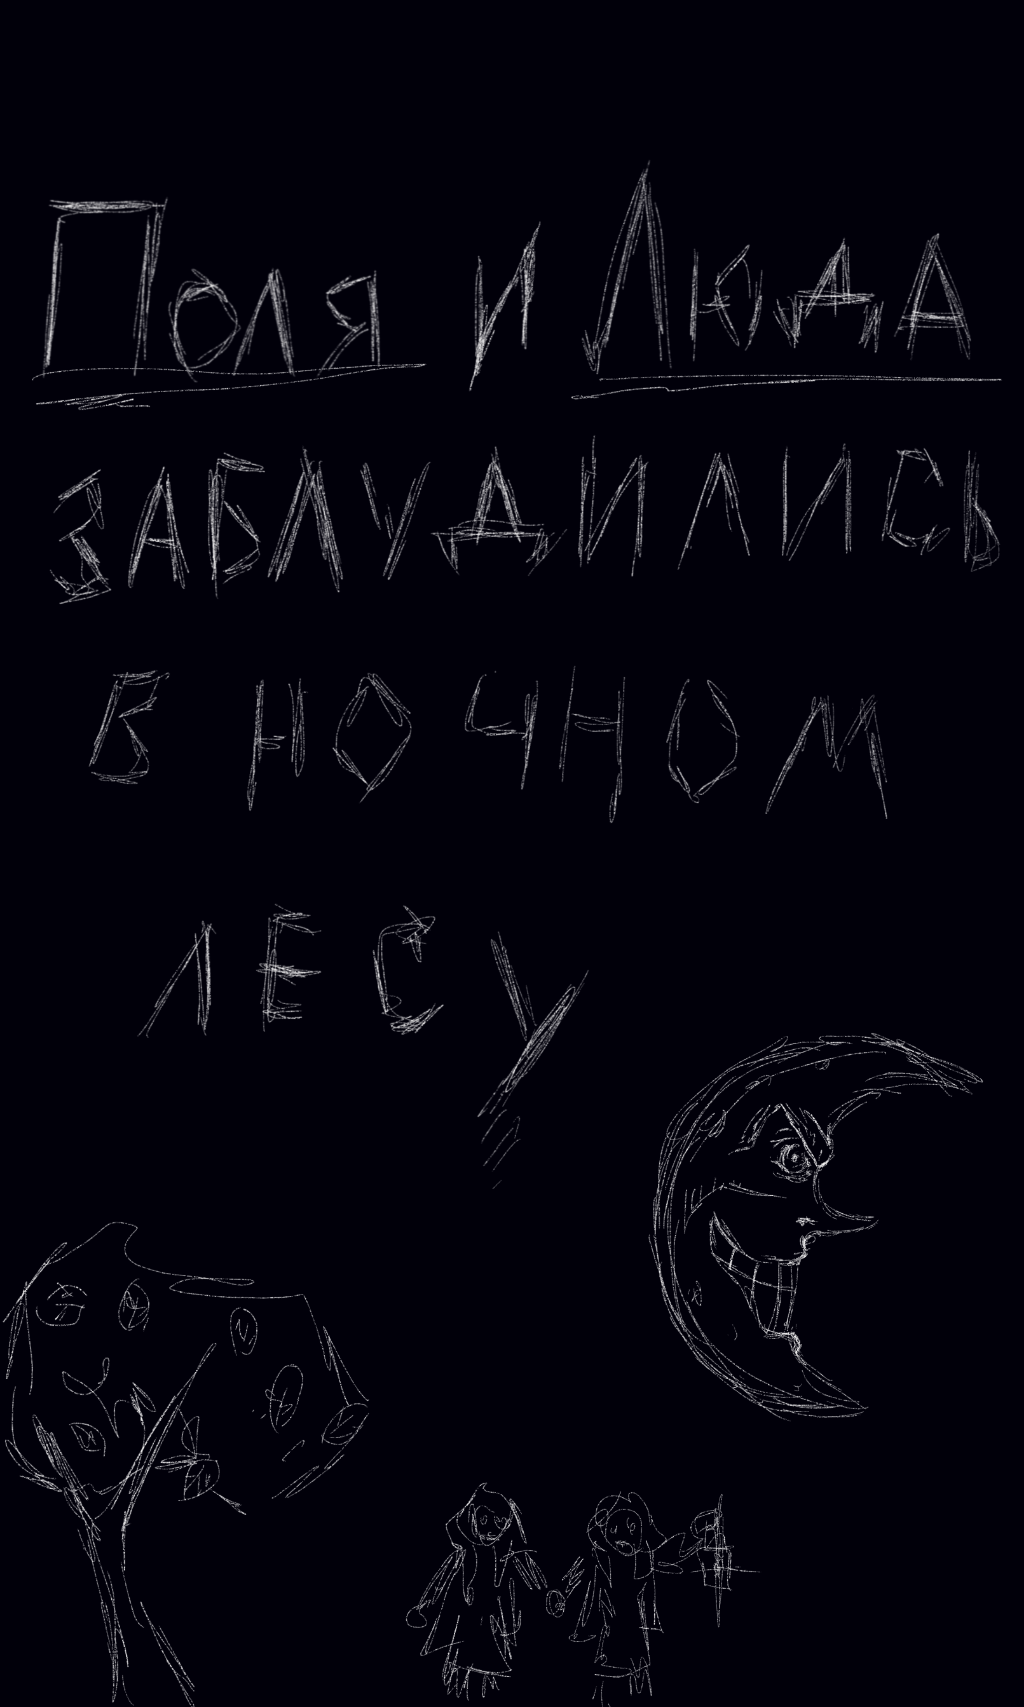 Поля и Люда
ЗАБЛУДИЛИСЬ
В НОЧНОМ
ЛЕСУ